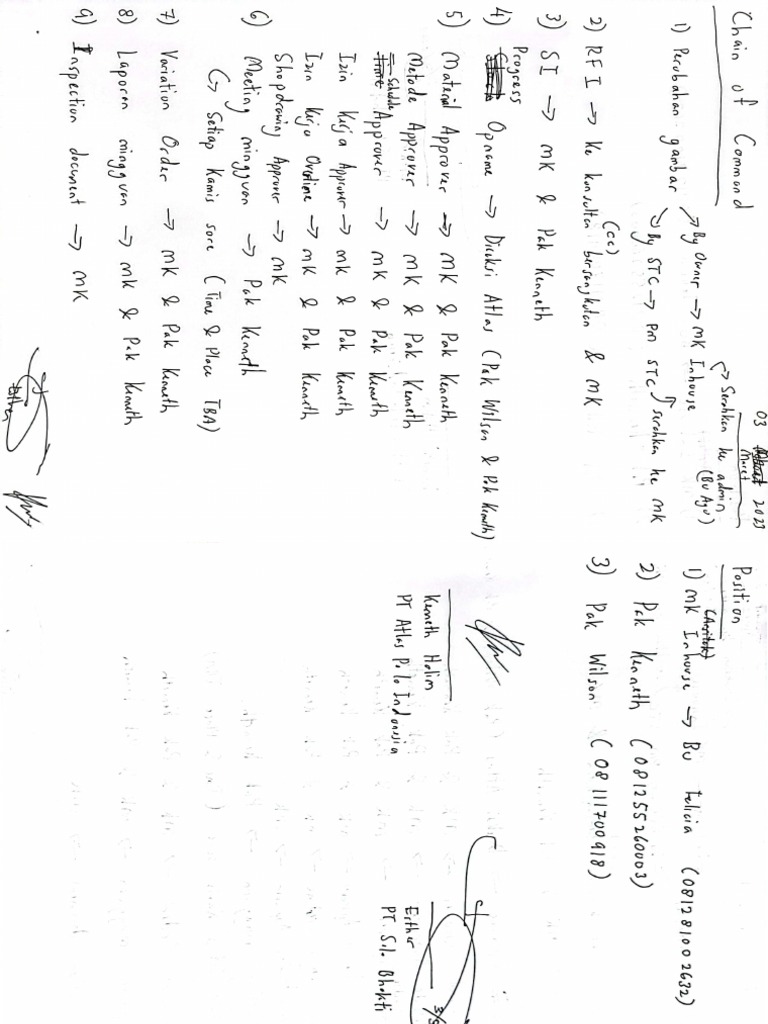 03 Maret 2023
Chain of Command
1) Perubahan gambar → By Owner → MK Inhouse → Serahkan ke admin (Bu Ayu)
→ By STC → PM STC → serahkan ke MK
2) RFI → ke konsultan bersangkutan & MK
(cc)
3) SI → MK & Pak Kenneth
4) Progress Opname → Direksi Atlas (Pak Wilson & Pak Kenneth)
5) Material Approver → MK & Pak Kenneth
Metode Approver → MK & Pak Kenneth
Time schedule Approver → MK & Pak Kenneth
Izin Kerja Approver → MK & Pak Kenneth
Izin Kerja Overtime → MK & Pak Kenneth
Shopdrawing Approver → MK
6) Meeting mingguan → Pak Kenneth
↳ Setiap Kamis sore (Time & Place TBA)
7) Variation Order → MK & Pak Kenneth
8) Laporan mingguan → MK & Pak Kenneth
9) Inspection document → MK
Position
(Arsitek)
1) MK Inhouse → Bu Felicia (081281002632)
2) Pak Kenneth (081255260003)
3) Pak Wilson (08111700918)
Kenneth Halim
PT Atlas Polo Indonesia
Esther
PT. Solo Bhakti
Esther